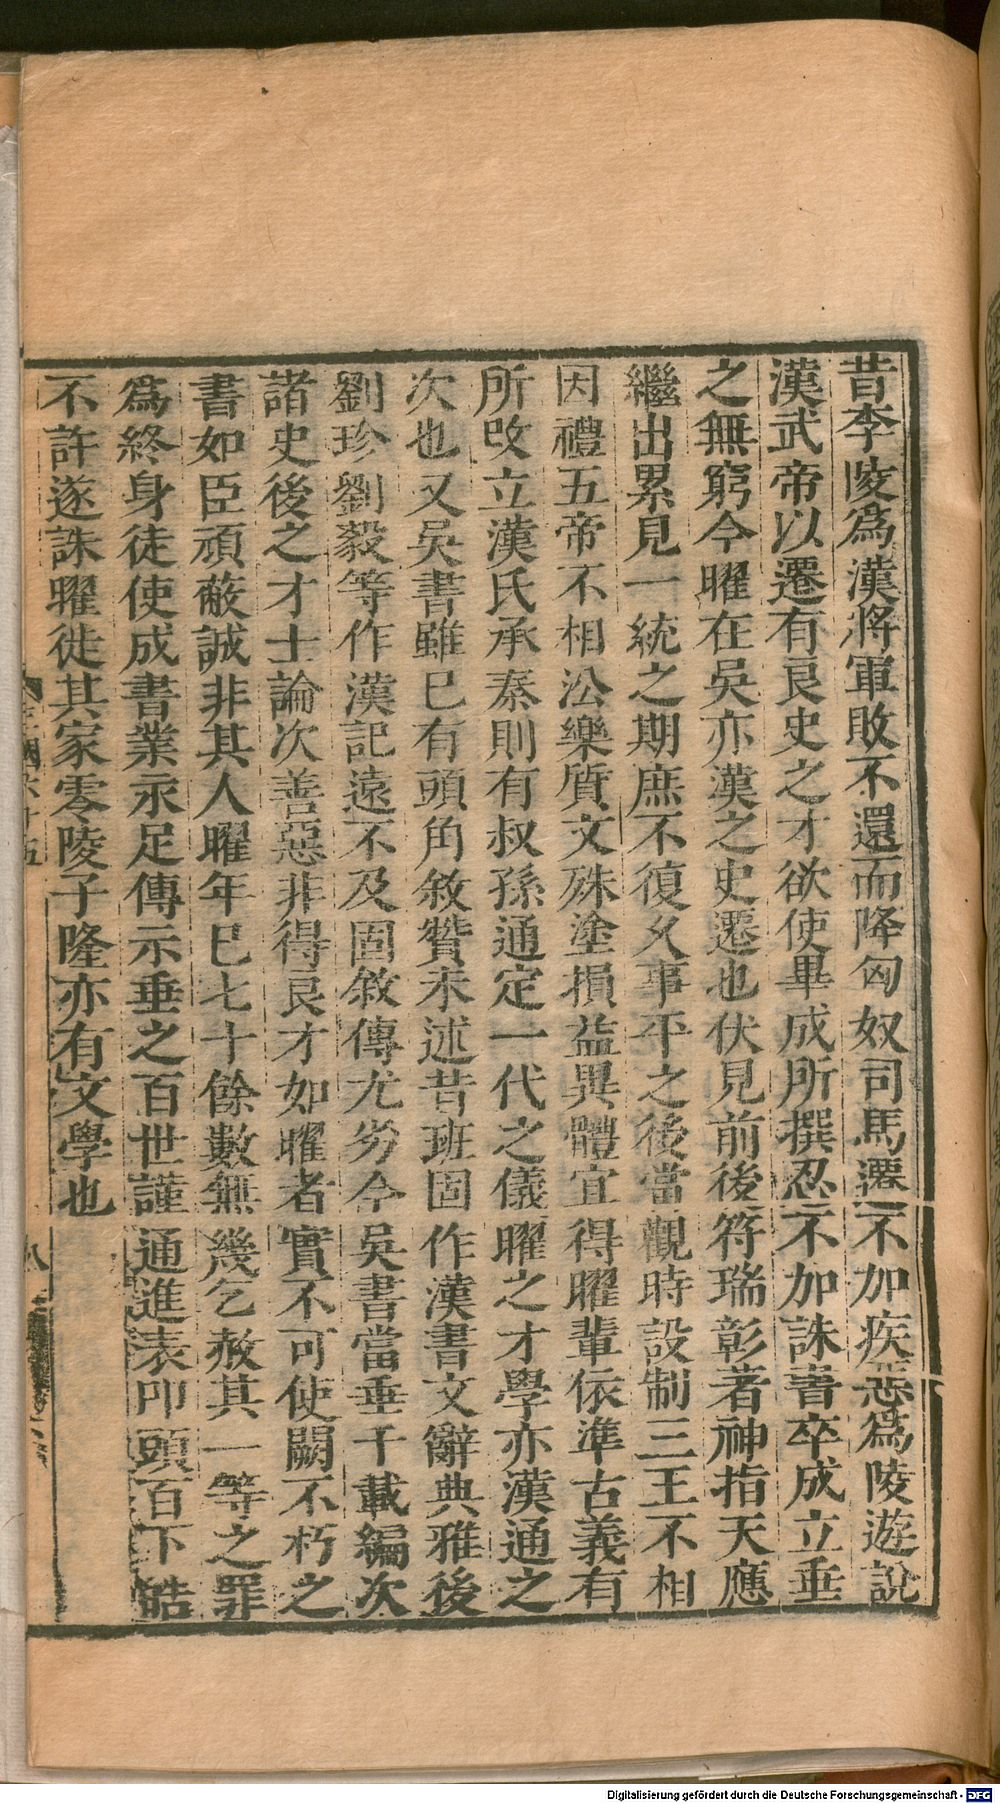 昔李陵爲漢將軍敗不還而降匈奴司馬遷不加疾惡爲陵遊說
漢武帝以遷有良史之才欲使畢成所撰忍不加誅書卒成立垂
之無窮今曜在吳亦漢之史遷也伏見前後符瑞彰著神指天應
繼出累見一統之期庶不復久事平之後當觀時設制三王不相
因禮五帝不相㳂樂質文殊塗損益異體宜得曜輩依準古義有
所改立漢氏承秦則有叔孫通定一代之儀曜之才學亦漢通之
次也又吳書雖已有頭角敘贊未述昔班固作漢書文辭典雅後
劉珍劉毅等作漢記遠不及固敘傳尤劣今吳書當垂千載編次
諸史後之才士論次善惡非得良才如曜者實不可使闕不朽之
書如臣頑蔽誠非其人曜年已七十餘數無幾乞赦其一等之罪
爲終身徒使成書業永足傳示垂之百世謹通進表叩頭百下皓
不許遂誅曜徙其家零陵子隆亦有文學也
八
Digitalisierung gefördert durch die Deutsche Forschungsgemeinschaft - DFG